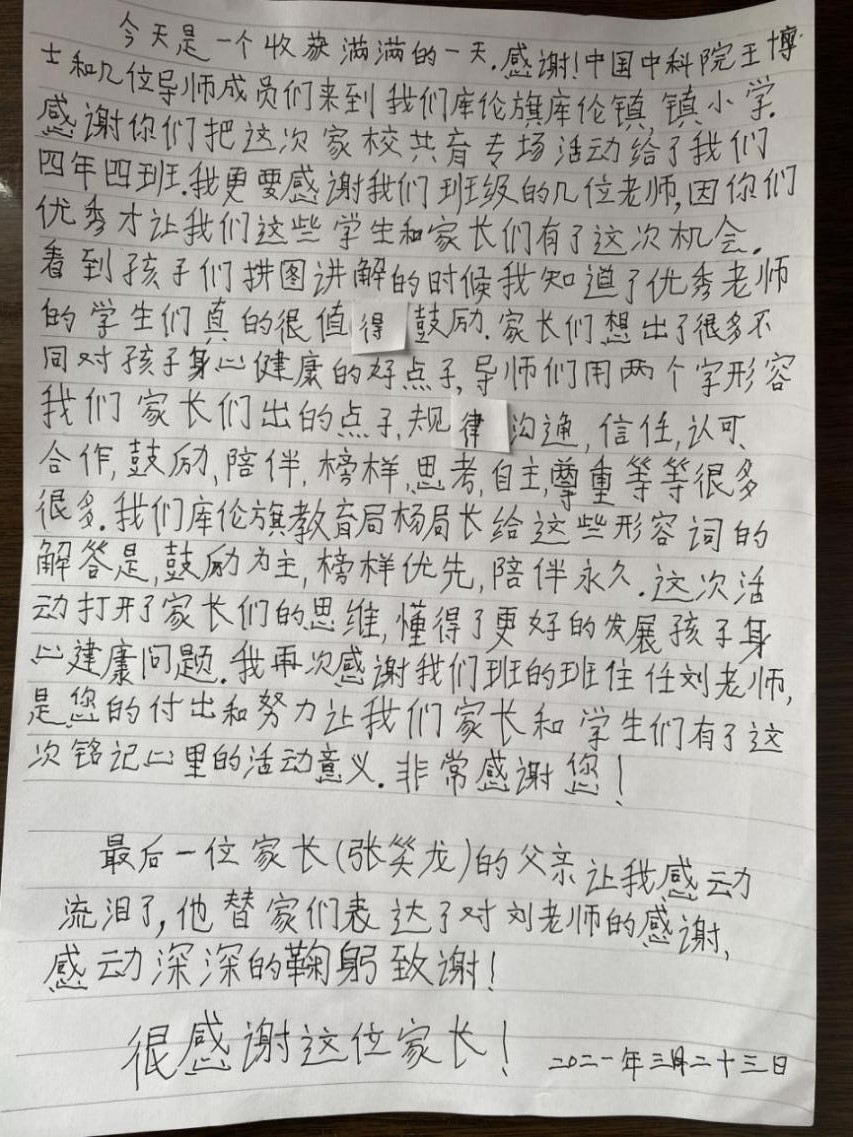 今天是一个收获满满的一天.感谢!中国中科院王博
士和几位导师成员们来到我们库伦旗库伦镇镇小学.
感谢你们把这次家校共育专场活动给了我们
四年四班.我更要感谢我们班级的几位老师,因你们
优秀才让我们这些学生和家长们有了这次机会.
看到孩子们拼图讲解的时候我知道了优秀老师
的学生们真的很值得鼓励.家长们想出了很多不
同对孩子身心健康的好点子,导师们用两个字形容
我们家长们出的点子,规律沟通,信任,认可、
合作,鼓励,陪伴,榜样,思考,自主,尊重等等很多
很多.我们库伦旗教育局杨局长给这些形容词的
解答是,鼓励为主,榜样优先,陪伴永久.这次活
动打开了家长们的思维,懂得了更好的发展孩子身
心建康问题.我再次感谢我们班的班住任刘老师,
是您的付出和努力让我们家长和学生们有了这
次铭记心里的活动意义.非常感谢您!
最后一位家长(张笑龙)的父亲让我感动
流泪了,他替家们表达了对刘老师的感谢,
感动深深的鞠躬致谢!
很感谢这位家长!
二〇二一年三月二十三日